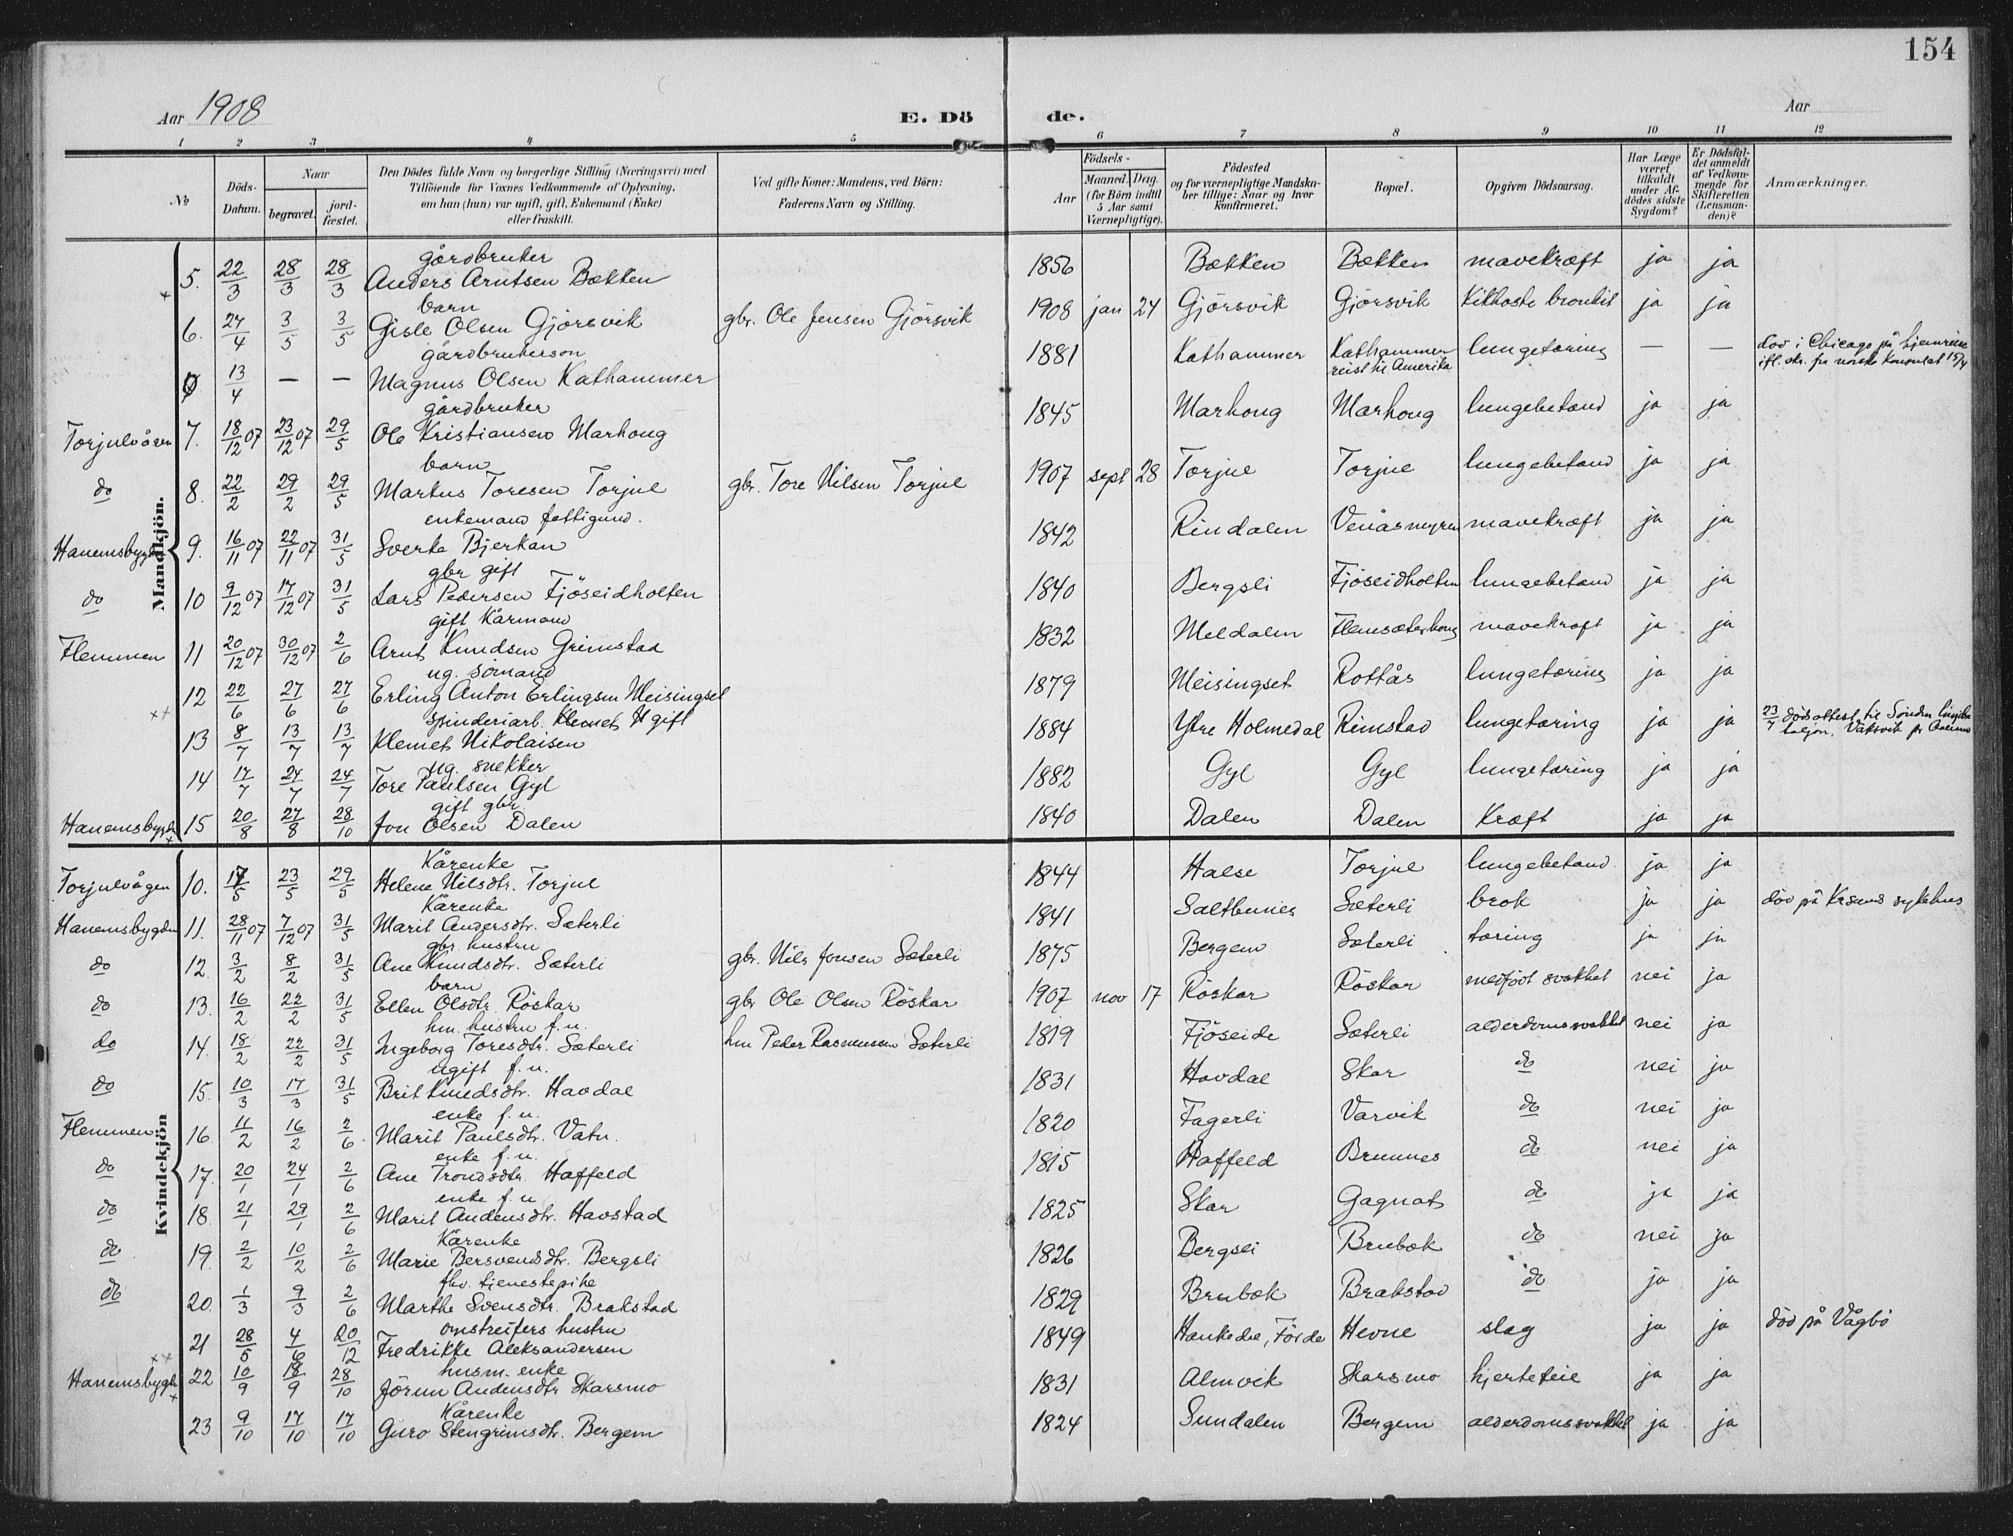 154
Aar 1908
E. Dö de.
Aar
1 2 3 4 5 6 7 8 9 10 11 12
№
Döds-Datum.
Naar
begravet.
jord-fæstet.
Den Dödes fulde Navn og borgerlige Stilling (Næringsvei) med
Tilföiende for Voxnes Vedkommende af Oplysning,
om han (hun) var ugift, gift, Enkemand (Enke)
eller fraskilt.
Ved gifte Koner: Mandens, ved Börn:
Faderens Navn og Stilling.
Födsels-
Aar
Maaned. Dag.
(for Börn indtil
5 Aar samt
Værnepligtige).
Födested
og for værnepligtige Mandska-
ber tillige: Naar og hvor
konfirmeret.
Bopæl.
Opgiven Dödsaarsag.
Har Læge
været
tilkaldt
under Af-
dödes sidste
Sygdom?
Er Dödsfal-
det anmeldt
af Vedkom-
mende for
Skifteretten
(Lensman-
den)?
Anmærkninger.
Mandkjön.
gårdbruker
5. 22/3 28/3 28/3 Anders Arntsen Bækken 1856 Bækken Bækken mavekræft ja ja
barn
6. 24/4 3/5 3/5 Gisle Olsen Gjörsvik gbr. Ole Jensen Gjörsvik 1908 jan 24 Gjörsvik Gjörsvik Kikhoste bronkit ja ja
gårdbrukerson
0 13/4 — — Magnus Olsen Kathammer 1881 Kathammer Kathammer reist til Amerika lungetæring — — död i Chicago på hjemreise ifl. skr. fra norske Konsulat 15/4
gårdbruker
Torjulvågen 7. 18/12 07 23/12 07 29/5 Ole Kristiansen Marhoug 1845 Marhoug Marhoug lungebetænd ja ja
barn
do 8. 22/2 29/2 29/5 Markus Toresen Torjul gbr. Tore Nilsen Torjul 1907 sept 28 Torjul Torjul lungebetænd ja ja
enkemand fattigund.
Hanemsbygden 9. 16/11 07 22/11 07 31/5 Sverke Bjerkan 1842 Rindalen Venåsmyren mavekræft ja ja
gbr gift
do 10 9/12 07 17/12 07 31/5 Lars Pedersen Fjöseidholten 1840 Bergsli Fjöseidholten lungebetænd ja ja
gift Kårmand
Flemmen 11 20/12 07 30/12 07 2/6 Arnt Knudsen Grimstad 1832 Meldalen Flemsæterhoug mavekræft ja ja
ug. sömand
12 22/6 27/6 27/6 Erling Anton Erlingsen Meisingset 1879 Meisingset Rottås lungetæring ja ja
spinderiarb. Klemet N gift
13 8/7 13/7 13/7 Klemet Nikolaisen 1884 Ytre Holmedal Rimstad lungetæring ja ja 23/7 dödsattest til Sönden
ug. snekker
14 17/7 24/7 24/7 Tore Paulsen Gyl 1882 Gyl Gyl lungetæring ja ja
gift gbr.
Hanemsbygden 15 20/8 27/8 28/10 Jon Olsen Dalen 1840 Dalen Dalen Kræft ja ja
Kvindekjön
Kårenke
Torjulvågen 10. 17/5 23/5 29/5 Helene Nilsdtr. Torjul 1844 Halse Torjul lungebetænd. ja ja
Kårenke
Hanemsbygden 11. 28/11 07 7/12 07 31/5 Marit Andersdtr. Sæterli 1841 Saltbunes Sæterli brok ja ja död på Krsunds sykehus
gbr. hustru
do 12. 3/2 8/2 31/5 Ane Knudsdtr. Sæterli gbr. Nils Jonsen Sæterli 1875 Bergem Sæterli tæring ja ja
barn
do 13. 16/2 22/2 31/5 Ellen Olsdtr. Röskar gbr Ole Olsen Röskar 1907 nov 17 Röskar Röskar medfödt svakhet nei ja
hm. hustru f.u.
do 14. 18/2 22/2 31/5 Ingeborg Toresdtr. Sæterli hm Peder Rasmussen Sæterli 1819 Fjöseide Sæterli alderdomssvakhet nei ja
ugift f.u.
do 15. 10/3 17/3 31/5 Brit Knudsdtr. Havdal 1831 Havdal Skar do nei ja
enke f.u.
Flemmen 16. 11/2 16/2 2/6 Marit Paulsdtr. Vatn. 1820 Fagerli Varvik do nei ja
enke f.u.
do 17. 20/1 24/1 2/6 Ane Trondsdtr Haffeld 1815 Haffeld Brunnes do nei ja
enke f.u.
do 18. 21/1 29/1 2/6 Marit Andersdtr. Havstad 1825 Skar Gagnat do ja ja
Kårenke
do 19. 2/2 10/2 2/6 Marie Bersvendsdtr. Bergsli 1826 Bergsli Brubæk do nei ja
fhv. tjenestepike
do 20. 1/3 9/3 2/6 Marthe Svensdtr. Brakstad 1829 Brubæk Brakstad do ja ja
omstreifers hustru
21 28/5 4/6 20/12 Fredrikke Aleksandersen 1849 Hankedal, Förde Hevne slag ja ja död på Vågbö
husm. enke
Hanemsbygden 22 10/9 18/9 28/10 Jörun Andersdtr Skarsmo 1831 Almvik Skarsmo hjertefeil ja ja
Kårenke
23 9/10 17/10 17/10 Guro Stengrimsdtr. Bergem 1824 Sundalen Bergem alderdomssvakhet ja ja